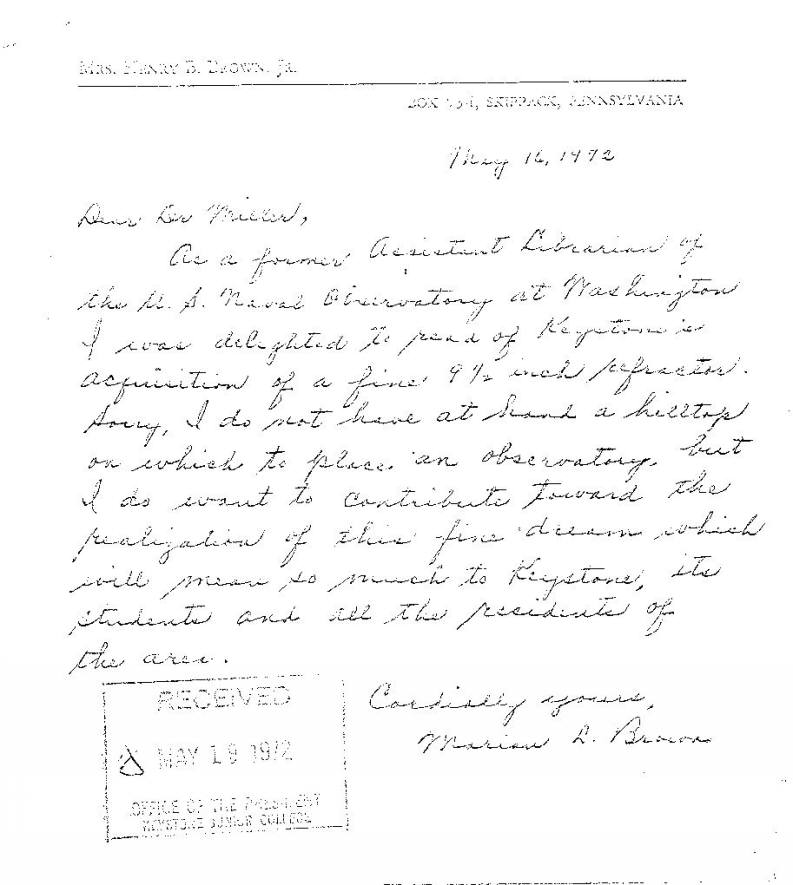 MRS. HENRY B. BROWN, JR.
BOX SKIPPACK, PENNSYLVANIA
May 16, 1972
Dear Dr Miller,
As a former Assistant Librarian of
the U. S. Naval Observatory at Washington
I was delighted to read of Keystone's
acquisition of a fine 9½ inch refractor.
Sorry, I do not have at hand a hilltop
on which to place an observatory, but
I do want to contribute toward the
realization of this fine dream which
will mean so much to Keystone, its
students and all the residents of
the area.
Cordially yours,
Marian L. Brown
RECEIVED
MAY 19 1972
OFFICE OF THE PRESIDENT
KEYSTONE JUNIOR COLLEGE